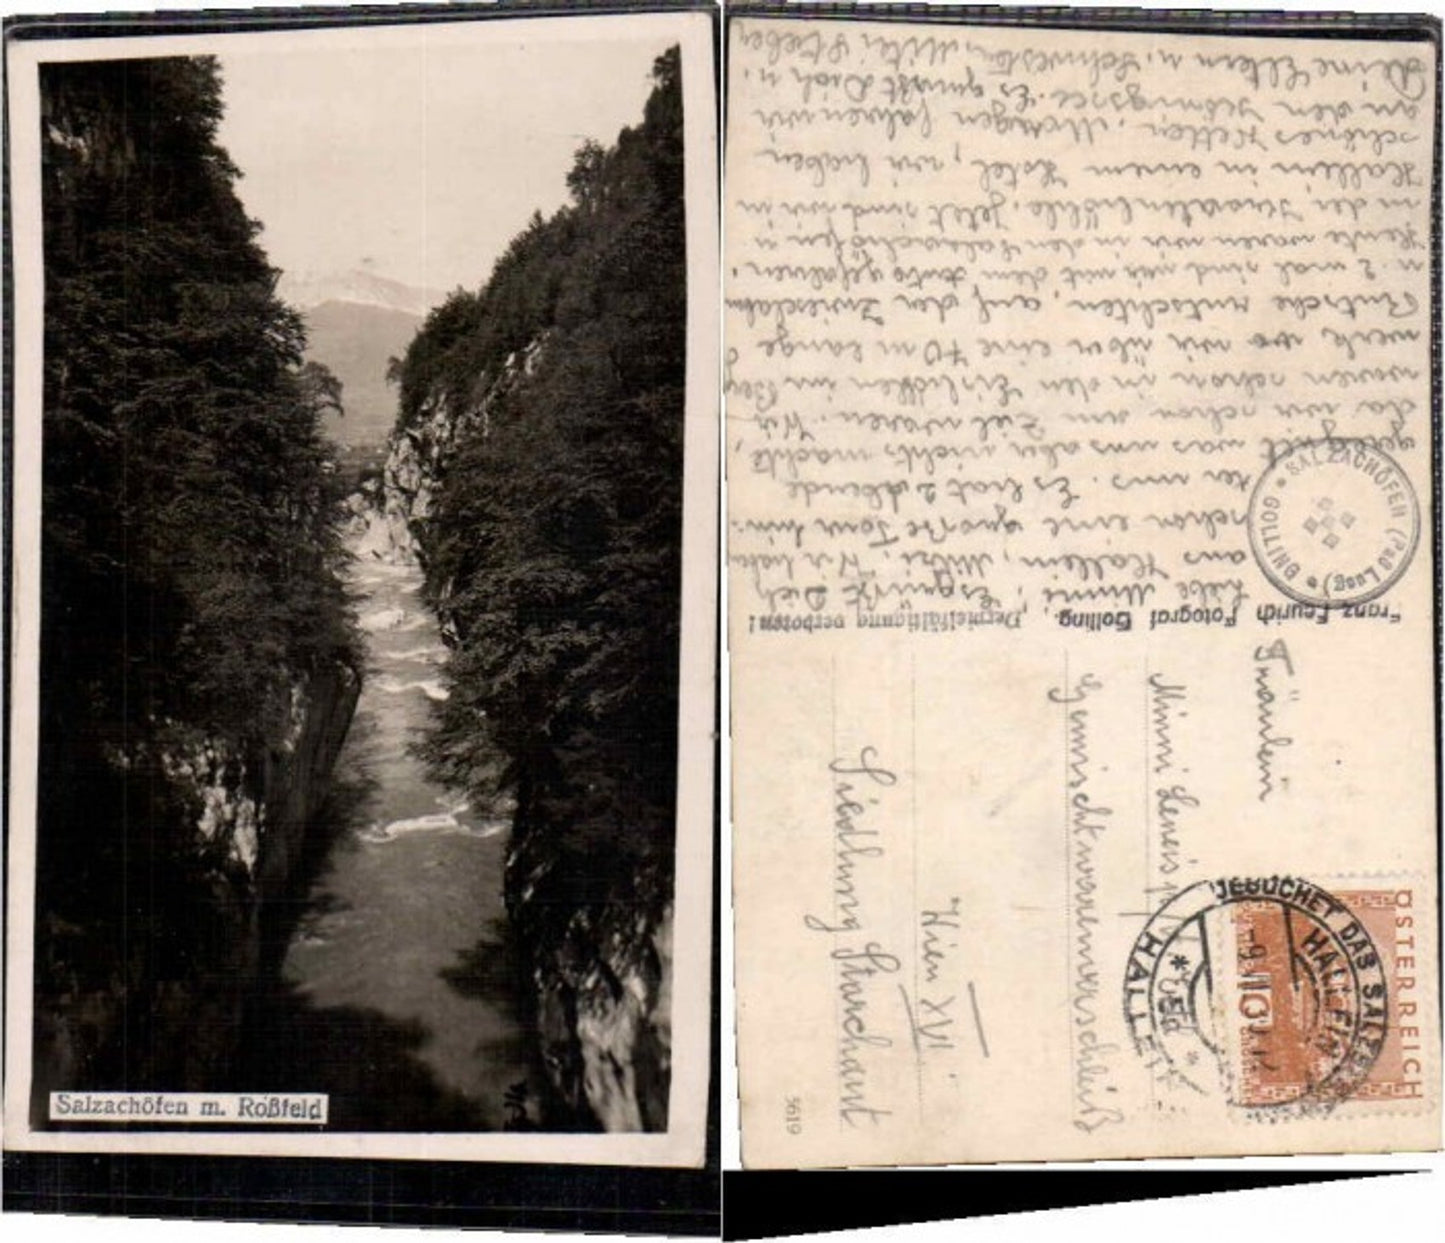 Salzachöfen m. Roßfeld
Liebe Minni, Es grüßt Dich
aus Hallein, Mitzi. Wir haben
schon eine große Tour hin-
ter uns. Es hat 2 Abende
geregnet was uns aber nichts machte,
da wir schon am Ziel waren. Wir
waren schon in den Eishöhlen im
werk wo wir über eine 70 m lange
Rutsche rutschten, auf der
u. 2 mal sind wir mit dem Auto gefahren.
Heute waren wir in den Salzachöfen u.
in der jetzt sind wir in
Hallein in einem Hotel, wir haben
schönes Wetter. Morgen fahren wir
an den Königssee. Es grüßt Dich u.
Deine Eltern u. Schwester, Mitzi
SALZACHÖFEN (Paß Lueg) GOLLING
Franz Feurich Fotograf Golling. Vervielfältigung verboten!
Fräulein
Minni
Gemischtwarenverschleiß
Wien XVI
Siedlung Starchant
ÖSTERREICH
10
BESUCHET DAS SALZ
HALLEIN
HALLEIN
5619